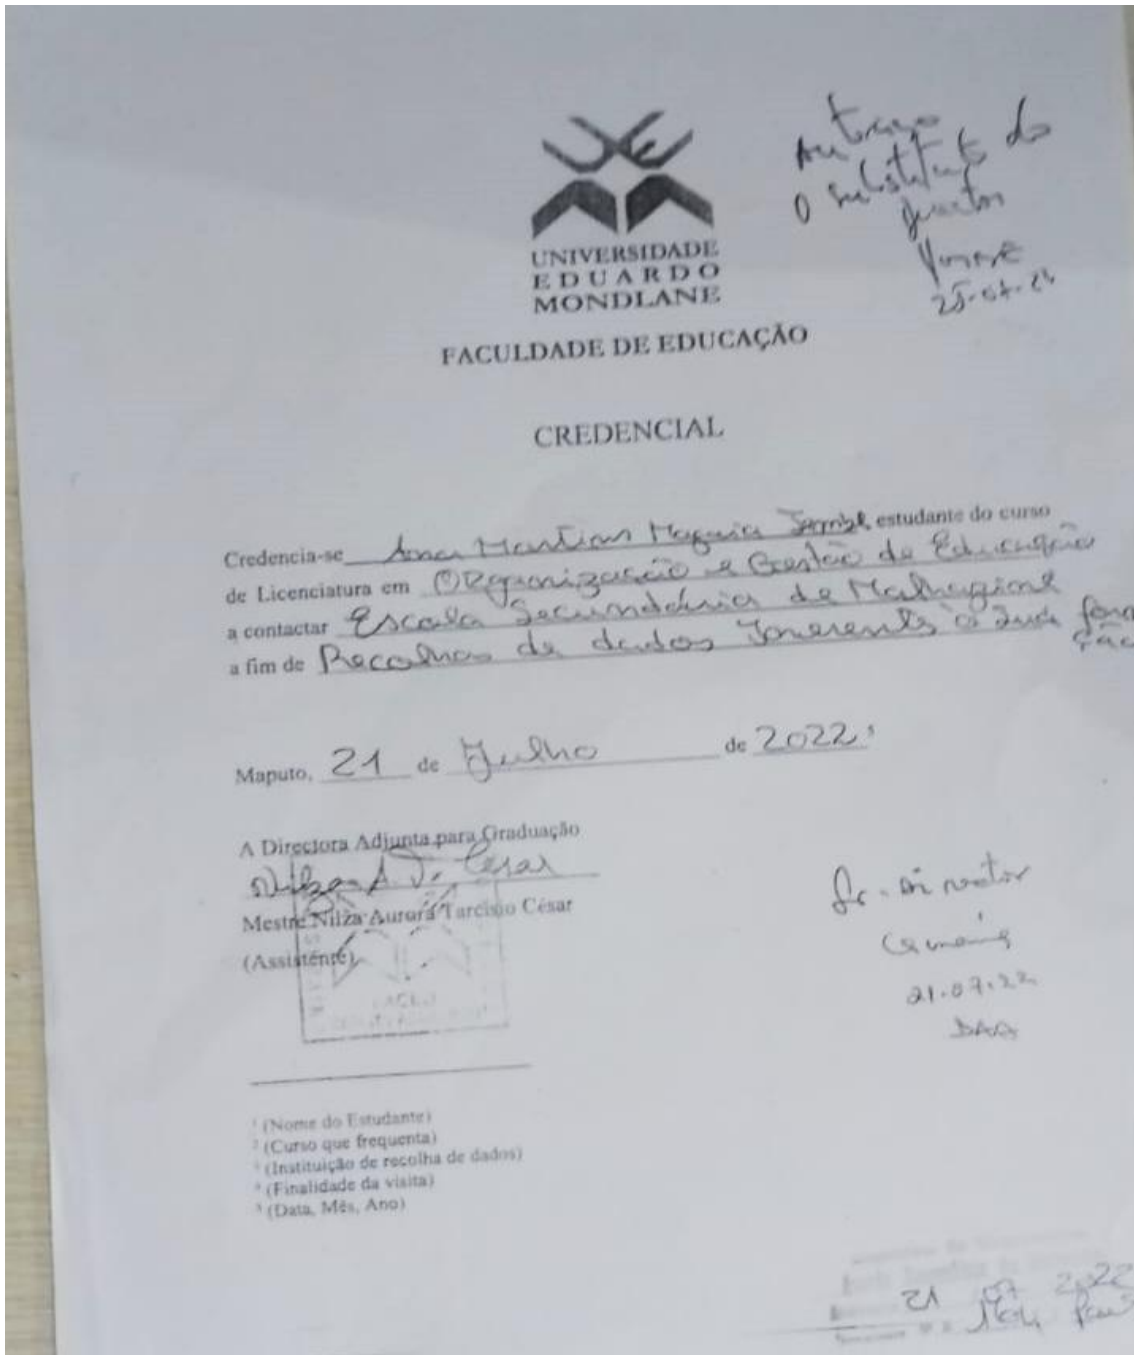 Autorizo
O substituto do
director
25-07-22
UNIVERSIDADE
EDUARDO
MONDLANE
FACULDADE DE EDUCAÇÃO
CREDENCIAL
Credencia-se Ana estudante do curso
de Licenciatura em Organização e Gestão de Educação
a contactar Escola Secundária de Malhazine
a fim de Recolhas de dados Inerente à sua forma
ção
Maputo, 21 de Julho de 2022 ⁵
A Directora Adjunta para Graduação
Nilza A. T. César
Mestre Nilza Aurora Tarcísio César
(Assistente)
Sr. Director
21.07.22
¹ (Nome do Estudante)
² (Curso que frequenta)
³ (Instituição de recolha de dados)
⁴ (Finalidade da visita)
⁵ (Data, Mês, Ano)
21 07 2022